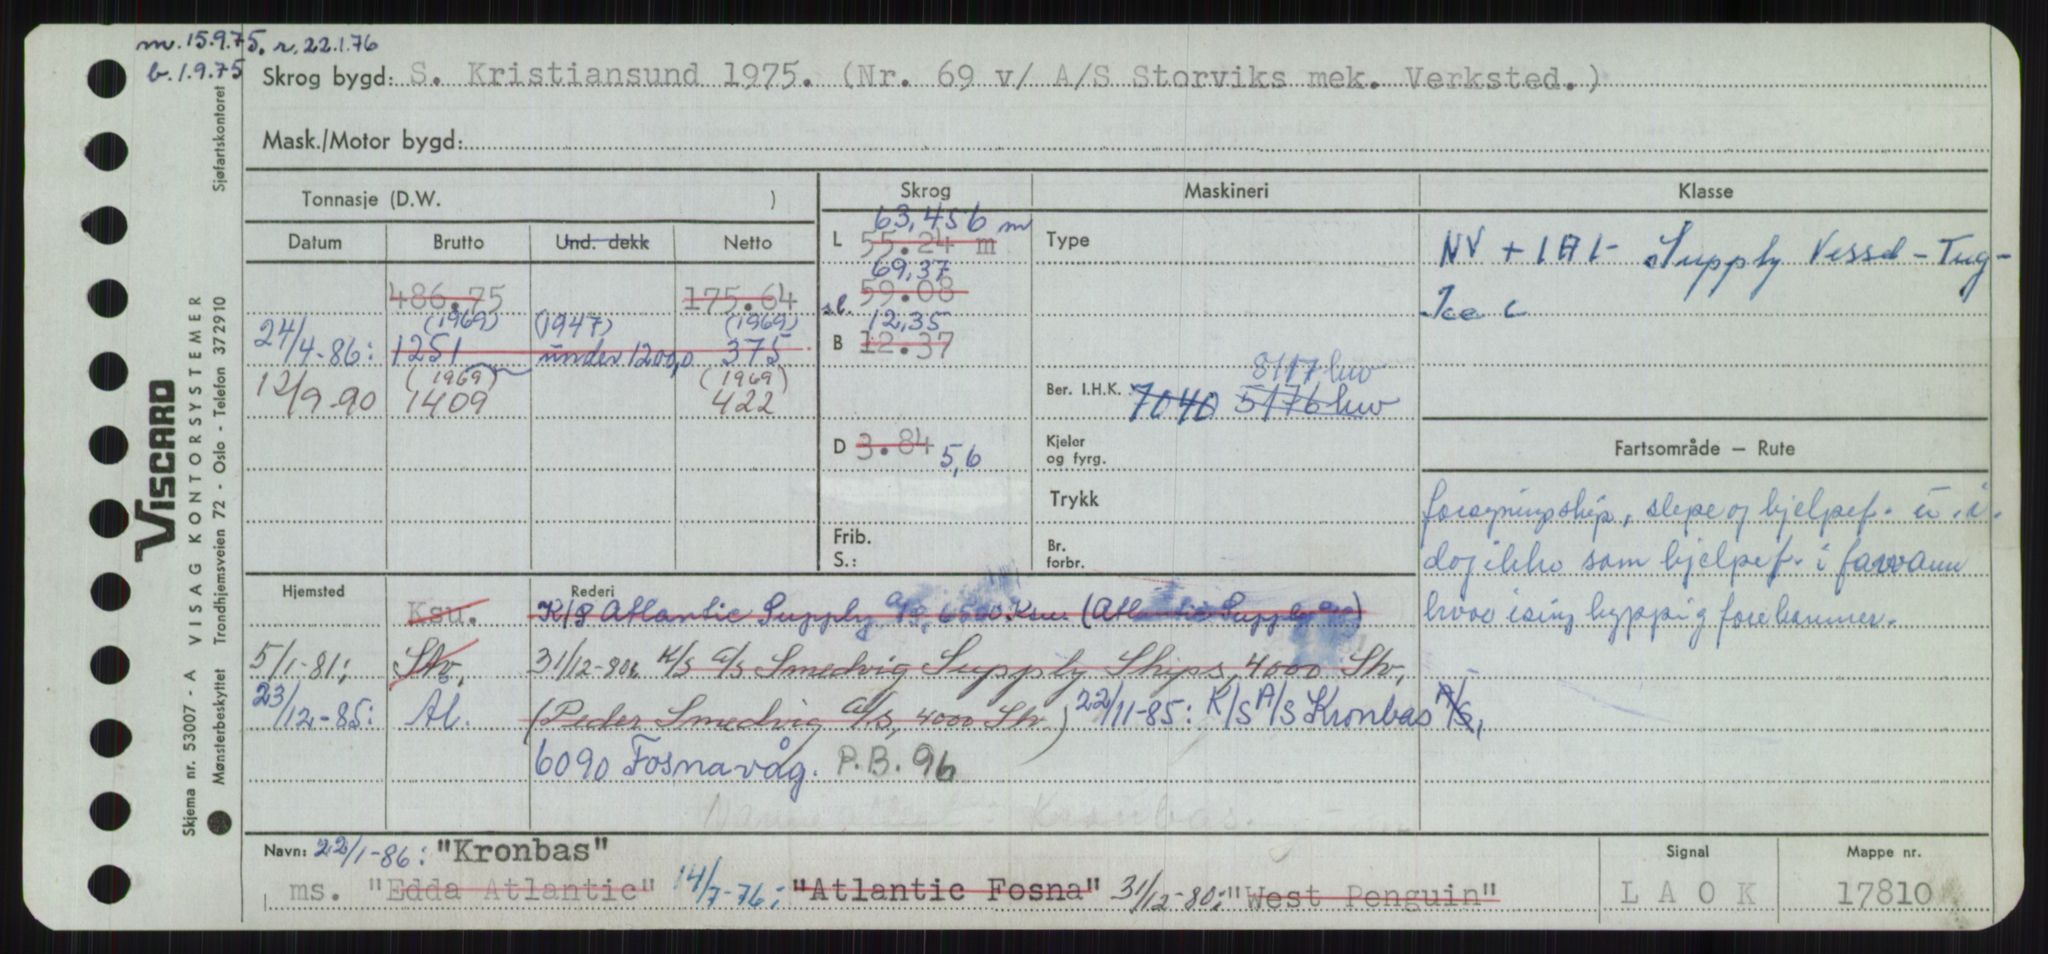 m. 15.9.75. r. 22.1.76
b. 1.9.75
Skrog bygd: S. Kristiansund 1975. (Nr. 69 v/ A/S Storviks mek. Verksted.)
Mask./Motor bygd:
Tonnasje (D.W. )
Skrog
Maskineri
Klasse
Datum
Brutto
Und. dekk
Netto
486.75
175.64
24/4-86: 1251 (1969) (1947) under 1200,0 375 (1969)
12/9-90 1409 (1969) 422 (1969)
L 63,456 m
55.24 m
69,37
59.08
12,35
B 12.37
D 3.84 5,6
Frib.
S.:
Type
Ber. I.H.K. 7040 5176 kw
Kjeler
og fyrg.
Trykk
Br.
forbr.
NV + 1A1 - Supply Vessel - Tug -
Ice C
Fartsområde – Rute
forsyningsskip, slepe og hjelpef.
dog ikke som hjelpef. i farvann
hvor ising hyppig forekommer.
Hjemsted
Rederi
Ksu. K/S Atlantic Supply A/S, 6500 Ksu. (Atlantic Supply A/S)
5/1-81: Stv. 31/12-80: K/S A/S Smedvig Supply Ships, 4000 Stv.
23/12-85: Ål. (Peder Smedvig A/S, 4000 Stv.) 22/11-85: K/S A/S Kronbas A/S,
6090 Fosnavåg. P.B. 96
Kronbas.
Navn: 22/1-86: "Kronbas"
ms. "Edda Atlantic" 14/7-76: "Atlantic Fosna" 31/12-80: "West Penguin"
Signal
L A O K
Mappe nr.
17810
VISCARD
Skjema nr. 53007 - A VISAG KONTORSYSTEMER
Mønsterbeskyttet Trondhjemsveien 72 - Oslo - Telefon 372910 Sjøfartskontoret